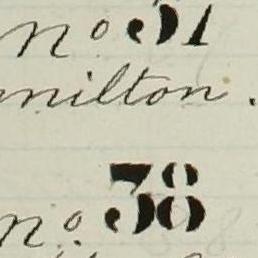 no 31
milton.
no. 38